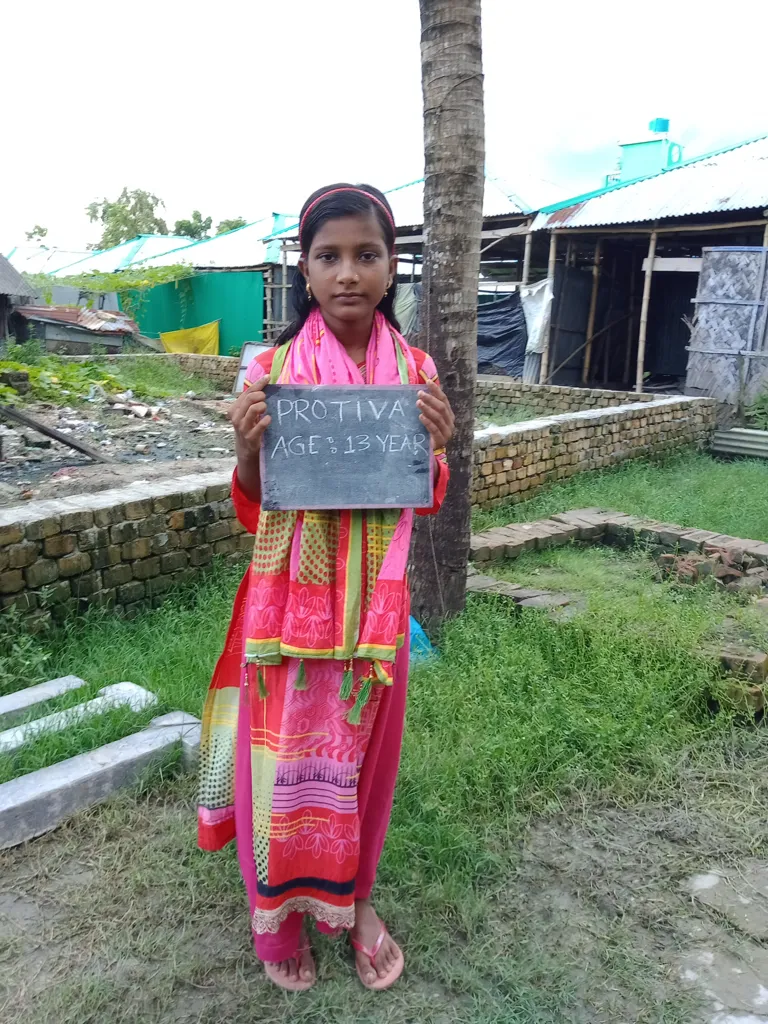 PROTIVA
AGE: 13 YEAR